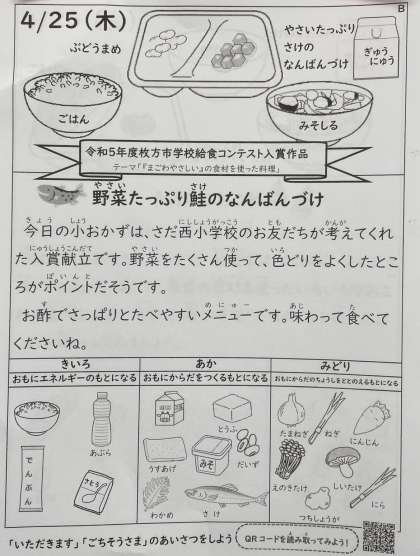 B
4/25(木)
ぶどうまめ
やさいたっぷり
さけの
なんばんづけ
ぎゅう
にゅう
ごはん
みそしる
令和5年度枚方市学校給食コンテスト入賞作品
テーマ「『まごわやさしい』の食材を使った料理」
野菜たっぷり鮭のなんばんづけ
今日の小おかずは、さだ西小学校のお友だちが考えてくれ
た入賞献立です。野菜をたくさん使って、色どりをよくしたとこ
ろがポイントだそうです。
お酢でさっぱりとたべやすいメニューです。味わって食べて
くださいね。
きいろ
おもにエネルギーのもとになる
でんぷん
あぶら
さとう
あか
おもにからだをつくるもとになる
とうふ
うすあげ
みそ
だいず
わかめ
さけ
みどり
おもにからだのちょうしをととのえるもとになる
たまねぎ
ねぎ
にんじん
えのきたけ
しいたけ
にら
つちしょうが
「いただきます」「ごちそうさま」のあいさつをしよう
QRコードを読み取ってみよう!